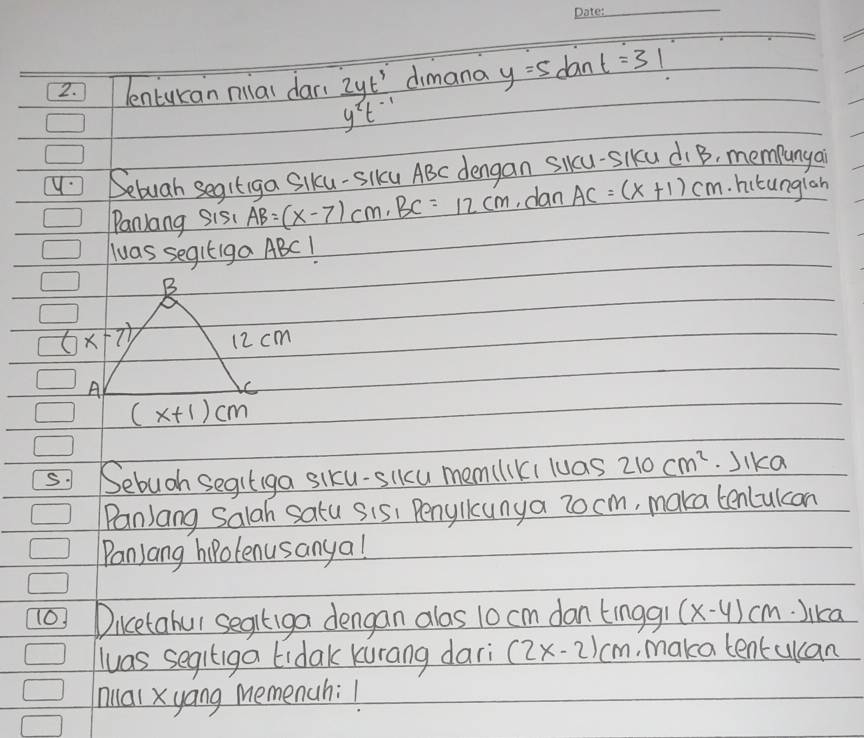 Date:
2. Tentukan nilai dari 2yt³ dimana y=5 dan t=3!
y²t⁻¹
4. Sebuah segitiga siku-siku ABC dengan siku-siku di B, mempunyai
Panjang sisi AB=(x-7) cm, BC= 12 cm, dan AC=(x+1) cm. hitunglah
luas segitiga ABC!
B
(x-7)
12 cm
A
C
(x+1) cm
5. Sebuah segitiga siku-siku memiliki luas 210 cm². Jika
Panjang salah satu sisi Penyikunya 20 cm, maka tentukan
Panjang hipotenusanya!
10. Diketahui segitiga dengan alas 10 cm dan tinggi (x-4) cm. Jika
luas segitiga tidak kurang dari (2x-2) cm, maka tentukan
nilai x yang memenuhi!